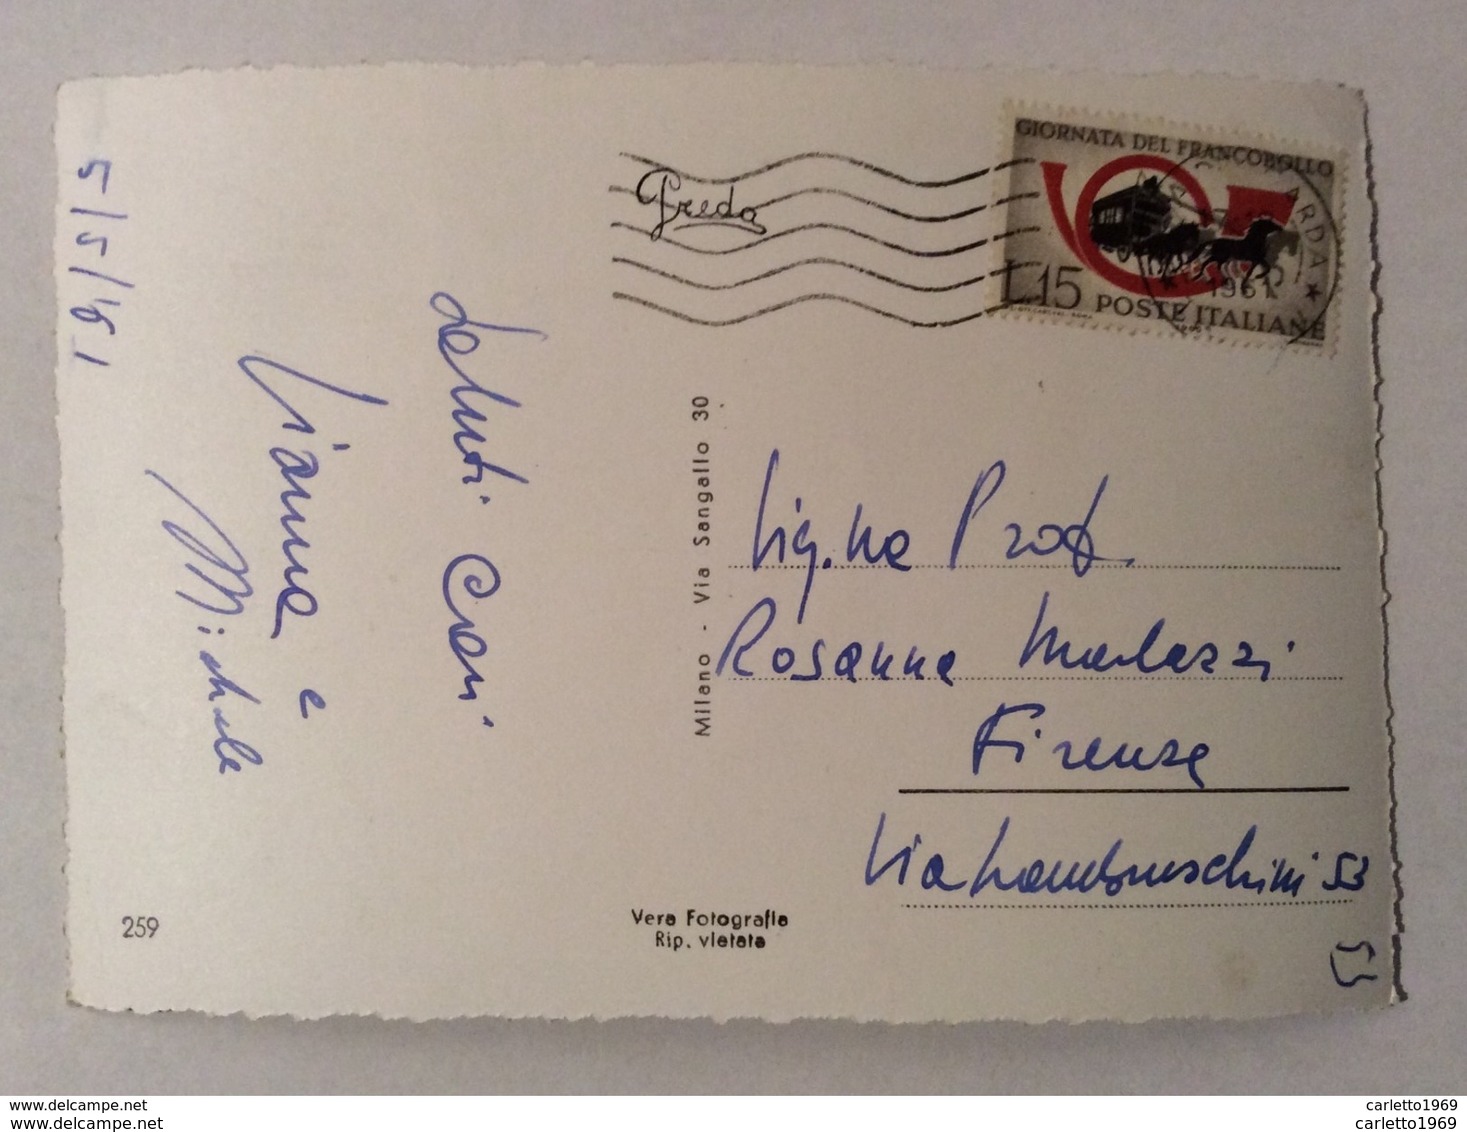 5/5/'61
Saluti Cari
Gianna e
Michele
Freda
GIORNATA DEL FRANCOBOLLO
L.15 POSTE ITALIANE
1961
ARDA
Milano - Via Sangallo 30
Sig.na Prof.
Rosanna
Firenze
Via Lambruschini 53
259
Vera Fotografia
Rip. vietata
www.delcampe.net
www.delcampe.net
carletto1969
carletto1969